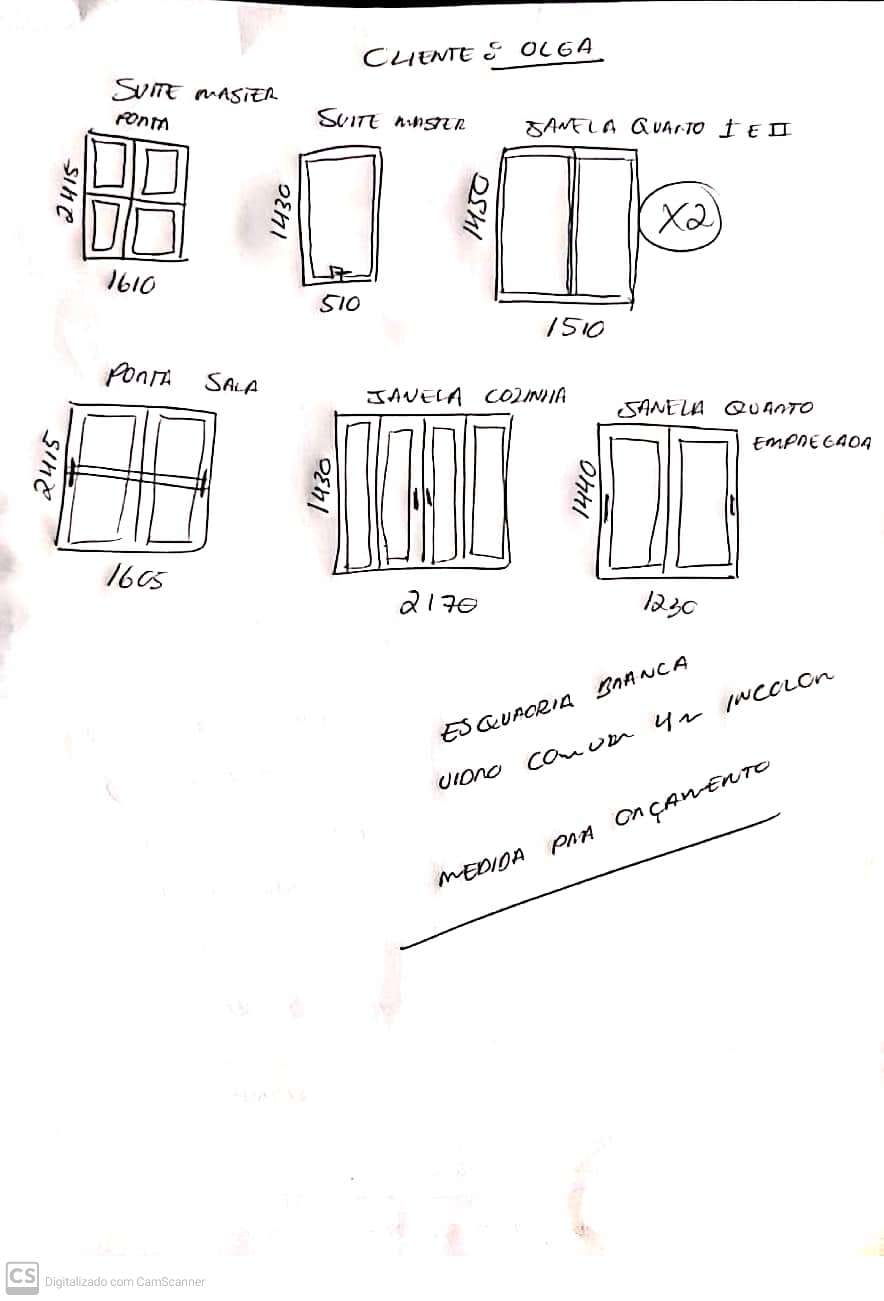 CLIENTE: OLGA
SUITE MASTER
PORTA
2415
1610
SUITE MASTER
1430
510
JANELA QUARTO I E II
1450
X2
1510
PORTA SALA
2415
1605
JANELA COZINHA
1430
2170
JANELA QUARTO
EMPREGADA
1440
1230
ESQUADRIA BRANCA
VIDRO COMUM 4M INCOLOR
MEDIDA PARA ORÇAMENTO
CS Digitalizado com CamScanner